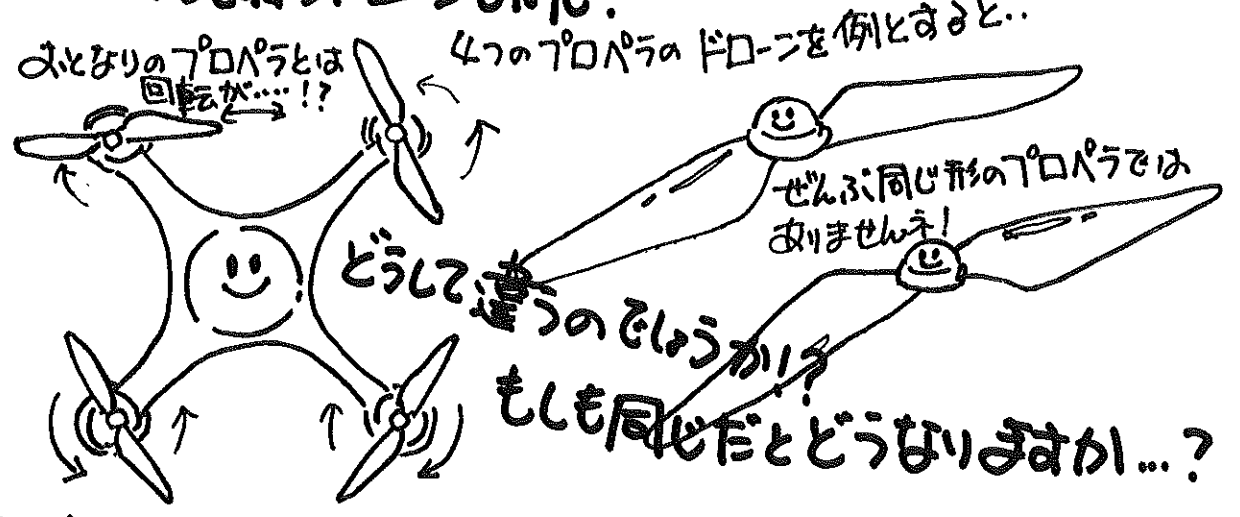 おとなりのプロペラとは
回転が‥‥!?
4つのプロペラの ドローンを例とすると‥
ぜんぶ同じ形のプロペラでは
ありませんネ!
どうして違うのでしょうか!?
もしも同じだとどうなりますか…?